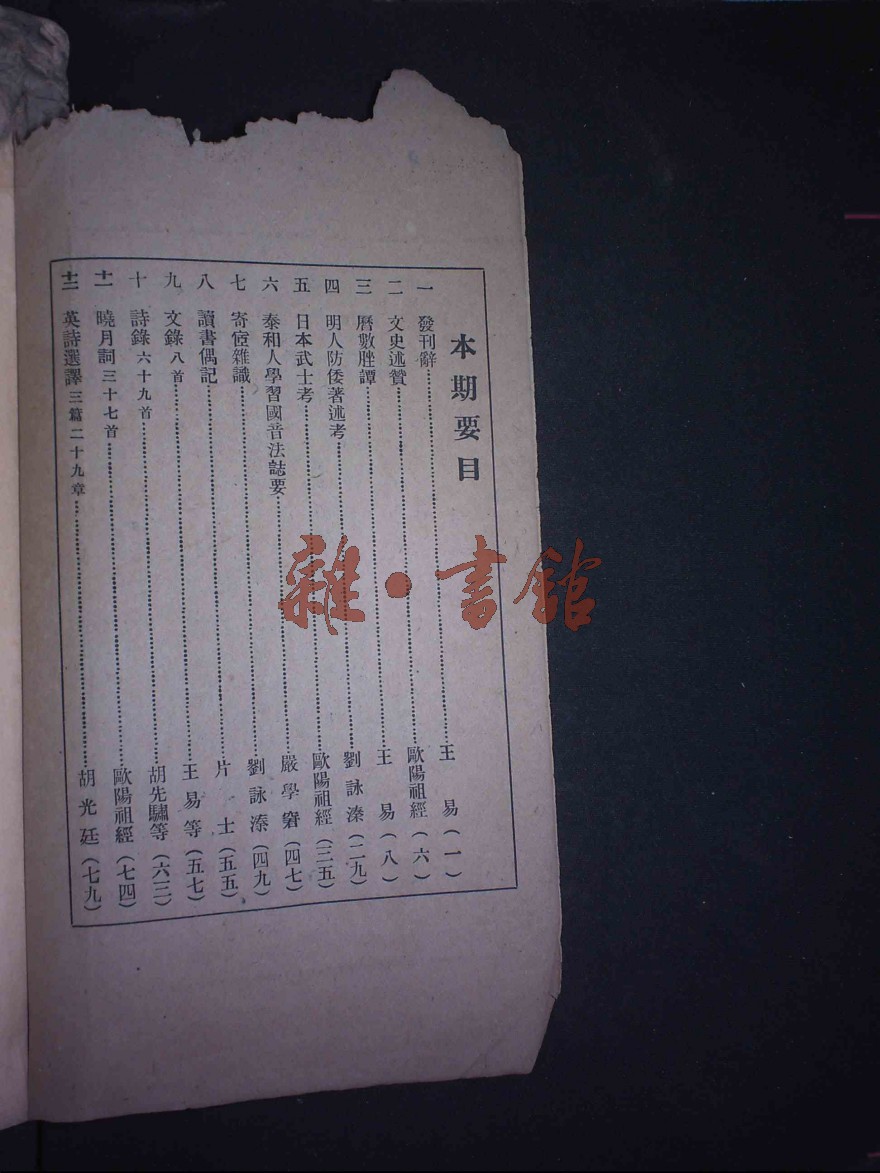 本期要目
一 發刊辭 王易(一)
二 文史述贊 歐陽祖經(六)
三 曆數脞譚 王易(八)
四 明人防倭著述考 劉詠溱(二九)
五 日本武士考 歐陽祖經(三五)
六 泰和人學習國音法誌要 嚴學宭(四七)
七 寄宦雜識 劉詠溱(四九)
八 讀書偶記 片士(五五)
九 文錄八首 王易等(五七)
十 詩錄六十九首 胡先驌等(六三)
十一 曉月詞三十七首 歐陽祖經(七四)
十二 英詩選譯三篇二十九章 胡光廷(七九)
雜·書館